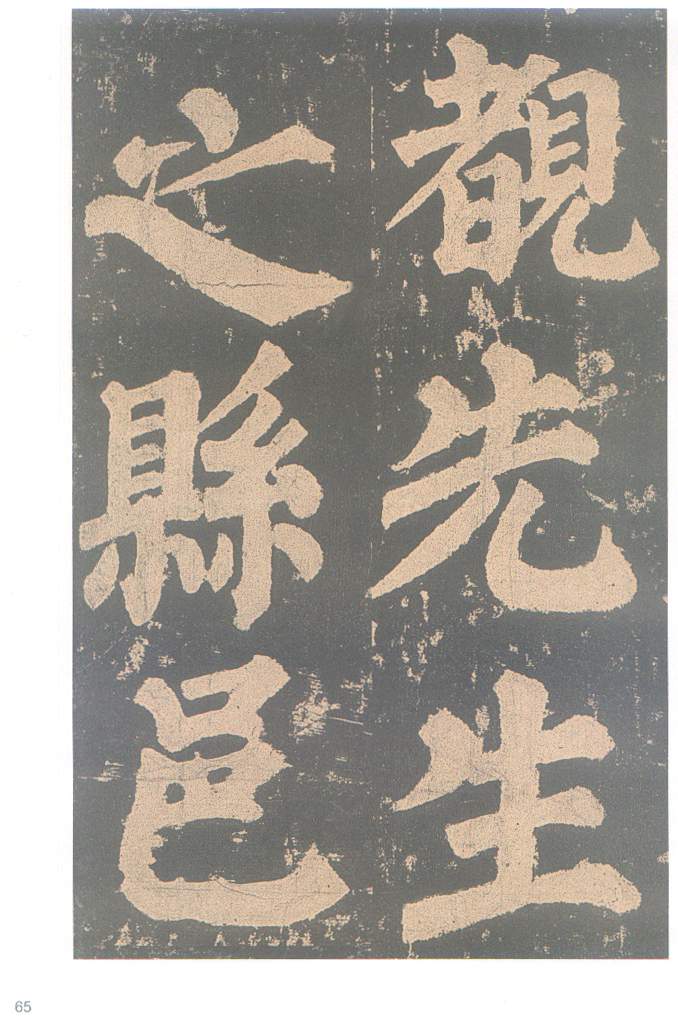 覩先生
之縣邑
65